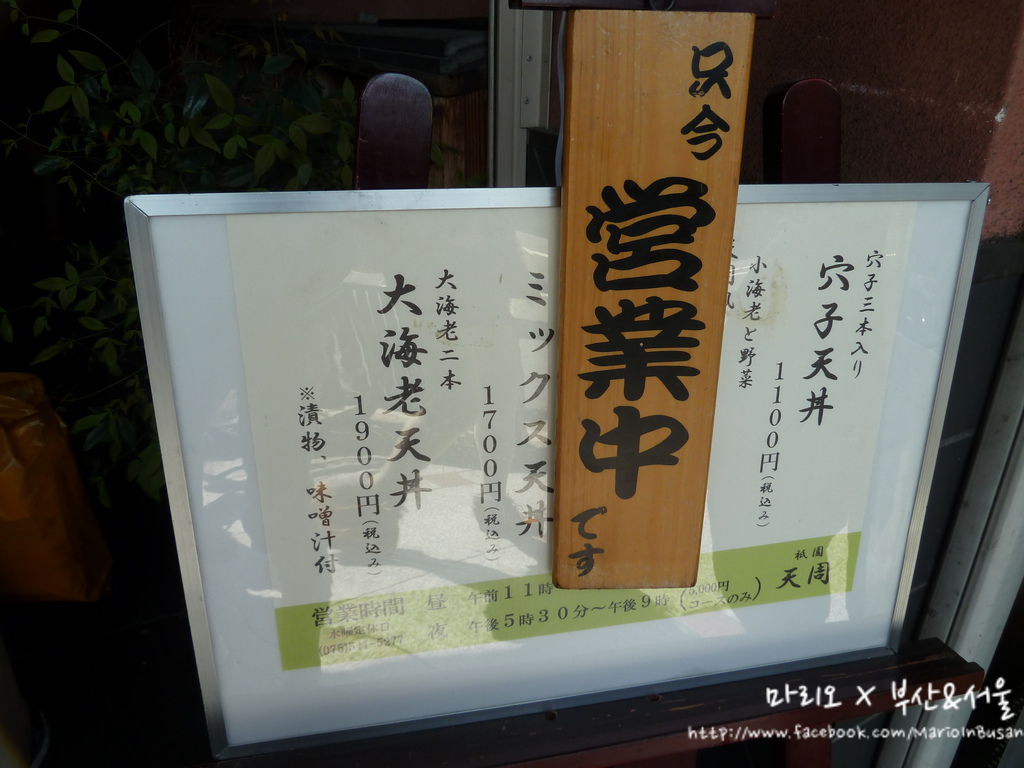 只今
営業中
です
穴子三本入り
穴子天丼
1100円(税込み)
小海老と野菜
ミックス天丼
1700円(税込み)
大海老二本
大海老天丼
1900円(税込み)
※漬物、味噌汁付
営業時間 昼 午前11時
夜 午後5時30分～午後9時 (5,000円コースのみ)
水曜定休日
(075)541-5277
祇園
天周
마리오 X 부산&서울
http://www.facebook.com/MarioInBusan